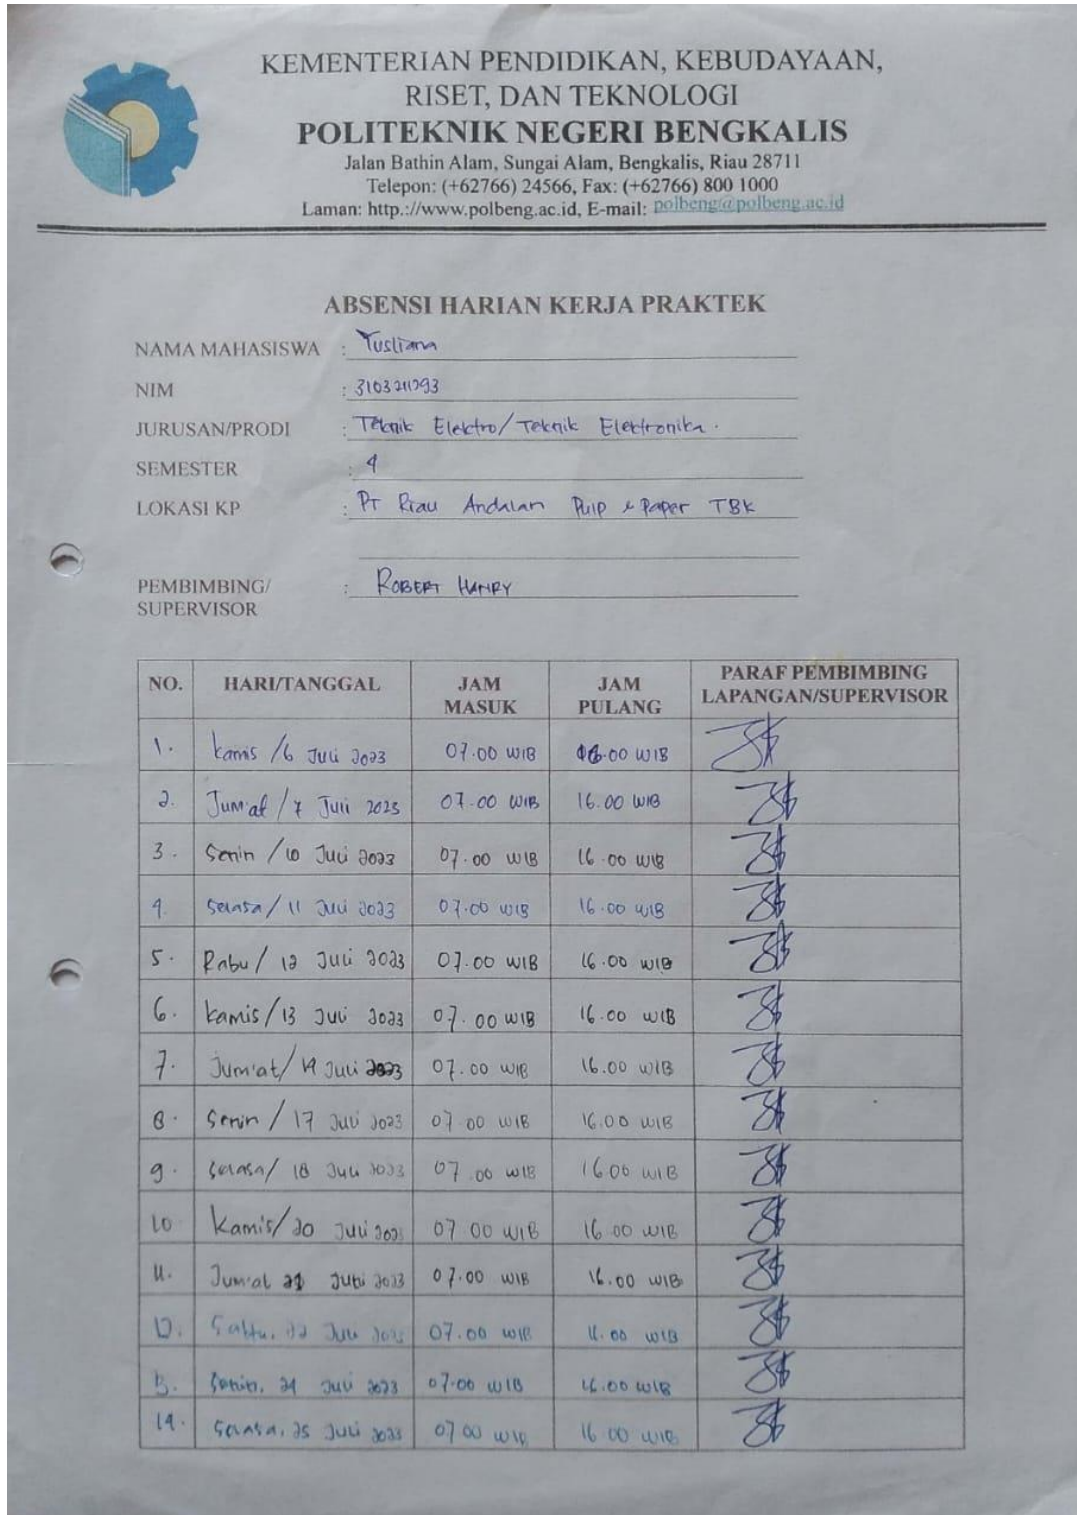 KEMENTERIAN PENDIDIKAN, KEBUDAYAAN,
RISET, DAN TEKNOLOGI
POLITEKNIK NEGERI BENGKALIS
Jalan Bathin Alam, Sungai Alam, Bengkalis, Riau 28711
Telepon: (+62766) 24566, Fax: (+62766) 800 1000
Laman: http.://www.polbeng.ac.id, E-mail: polbeng@polbeng.ac.id
ABSENSI HARIAN KERJA PRAKTEK
NAMA MAHASISWA : Yusliana
NIM : 3103211293
JURUSAN/PRODI : Teknik Elektro/Teknik Elektronika.
SEMESTER : 4
LOKASI KP : PT Riau Andalan Pulp & Paper TBK
PEMBIMBING/ : ROBERT HANRY
SUPERVISOR
NO. HARI/TANGGAL JAM MASUK JAM PULANG PARAF PEMBIMBING LAPANGAN/SUPERVISOR
1. Kamis /6 Juli 2023 07.00 WIB 16.00 WIB
2. Jum'at / 7 Juli 2023 07.00 WIB 16.00 WIB
3. Senin / 10 Juli 2023 07.00 WIB 16.00 WIB
4. Selasa / 11 Juli 2023 07.00 WIB 16.00 WIB
5. Rabu / 12 Juli 2023 07.00 WIB 16.00 WIB
6. Kamis / 13 Juli 2023 07.00 WIB 16.00 WIB
7. Jum'at / 14 Juli 2023 07.00 WIB 16.00 WIB
8. Senin / 17 Juli 2023 07.00 WIB 16.00 WIB
9. Selasa / 18 Juli 2023 07.00 WIB 16.00 WIB
10 Kamis / 20 Juli 2023 07.00 WIB 16.00 WIB
11. Jum'at 21 Juli 2023 07.00 WIB 16.00 WIB
12. Sabtu, 22 Juli 2023 07.00 WIB 16.00 WIB
13. Senin, 24 Juli 2023 07.00 WIB 16.00 WIB
14. Selasa, 25 Juli 2023 07 00 WIB 16 00 WIB